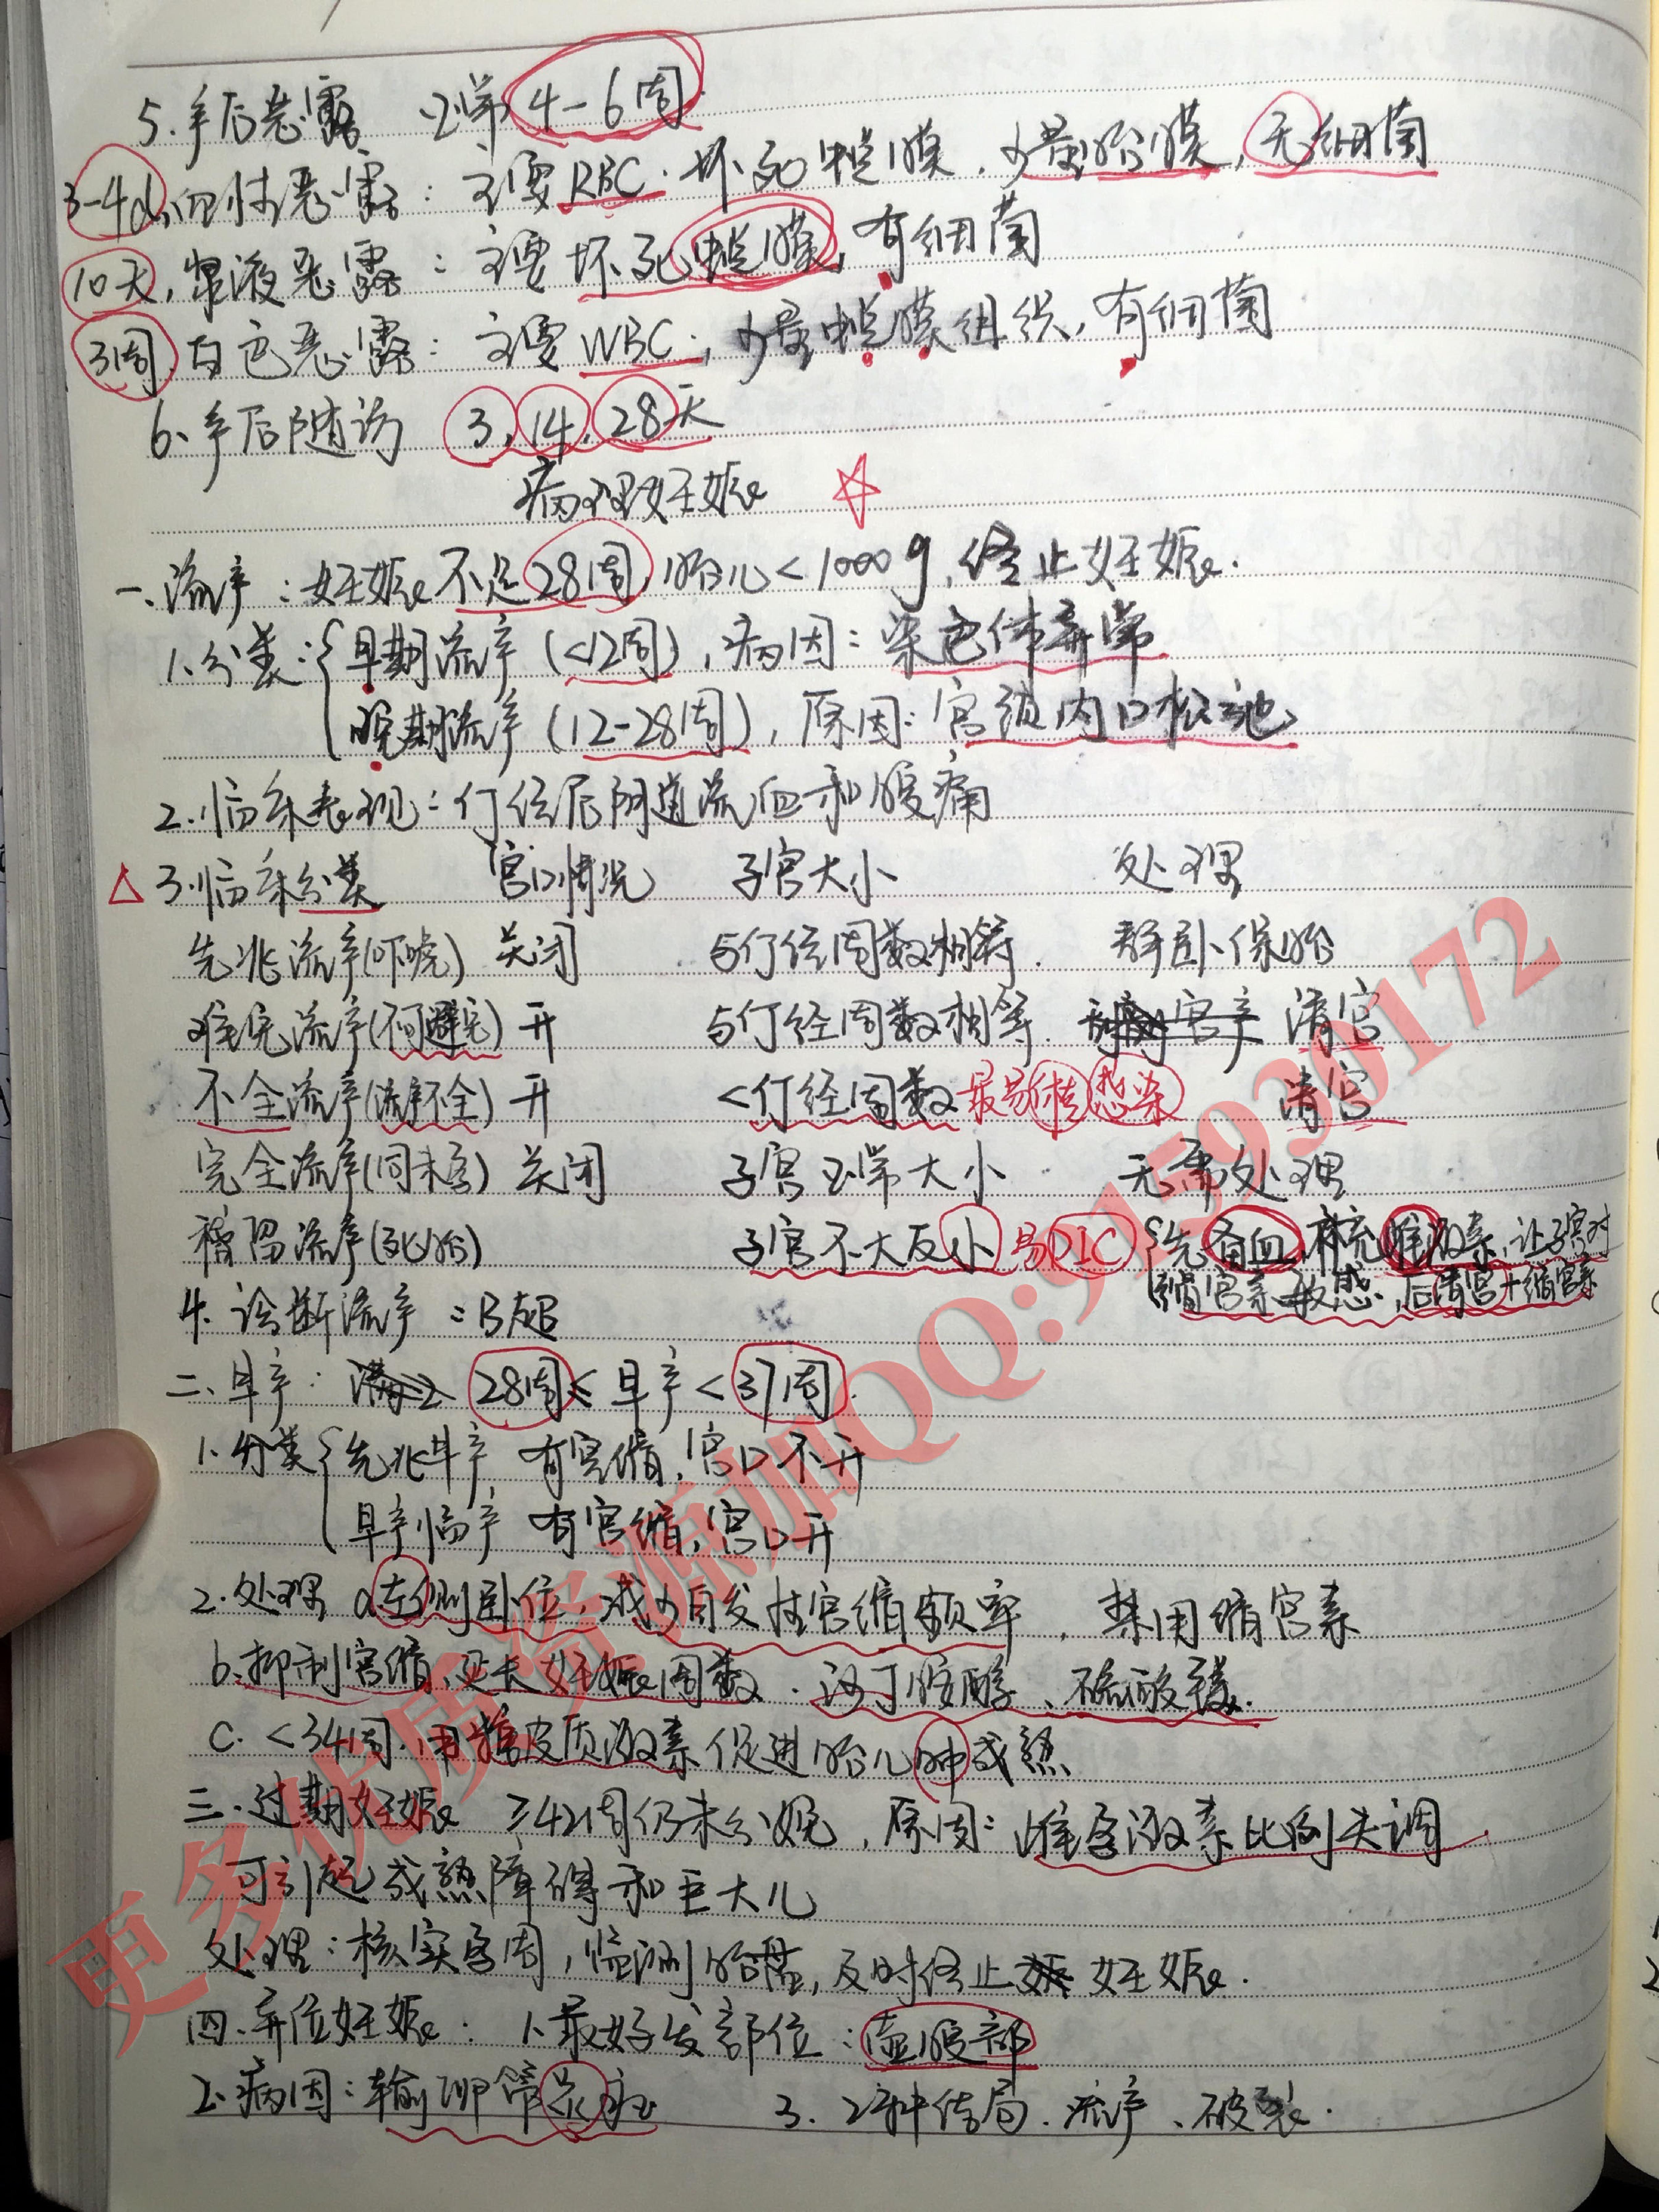 5.产后恶露 正常4-6周
3-4d,血性恶露:主要RBC.坏死蜕膜,少量胎膜,无细菌
10天,浆液恶露:主要坏死蜕膜,有细菌
3周,白色恶露:主要WBC,少量蜕膜组织,有细菌
6.产后随访 3,14,28天
病理妊娠 ☆
一.流产:妊娠不足28周,胎儿<1000g,终止妊娠.
1.分类:{早期流产(<12周),病因:染色体异常
晚期流产(12-28周),原因:宫颈内口松弛
2.临床表现:停经后阴道流血和腹痛
△ 3.临床分类 宫口情况 子宫大小 处理
先兆流产(吓唬) 关闭 与停经周数相符. 静卧保胎
难免流产(不可避免) 开 与停经周数相等. 清宫
不全流产(流产不全) 开 <停经周数 最易休克感染 清宫
完全流产(同未孕) 关闭 子宫正常大小 无需处理
稽留流产(死胎) 子宫不大反小 易DIC {先备血,补充雌激素,让子宫对
缩宫素敏感,后清宫+缩宫素
4.诊断流产:B超
二.早产: 28周≤早产<37周.
1.分类{先兆早产 有宫缩,宫口不开
早产临产 有宫缩,宫口开
2.处理 a左侧卧位,减少自发性宫缩频率,禁用缩宫素
b.抑制宫缩,延长妊娠周数.沙丁胺醇、硫酸镁.
c.<34周.用糖皮质激素促进胎儿肺成熟
三.过期妊娠 ≥42周仍未分娩,原因:雌孕激素比例失调
可引起成熟障碍和巨大儿
处理:核实孕周,监测胎盘,及时终止妊娠.
四.异位妊娠: 1.最好发部位:壶腹部
2.病因:输卵管炎症 3.2种结局.流产、破裂.
更多优质资源加QQ:915930172